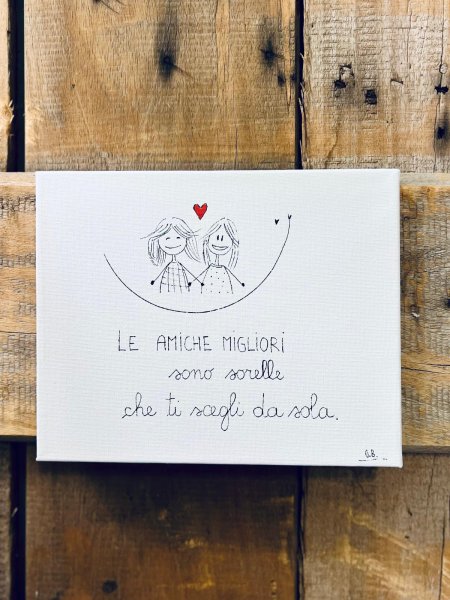 LE AMICHE MIGLIORI
sono sorelle
che ti scegli da sola.